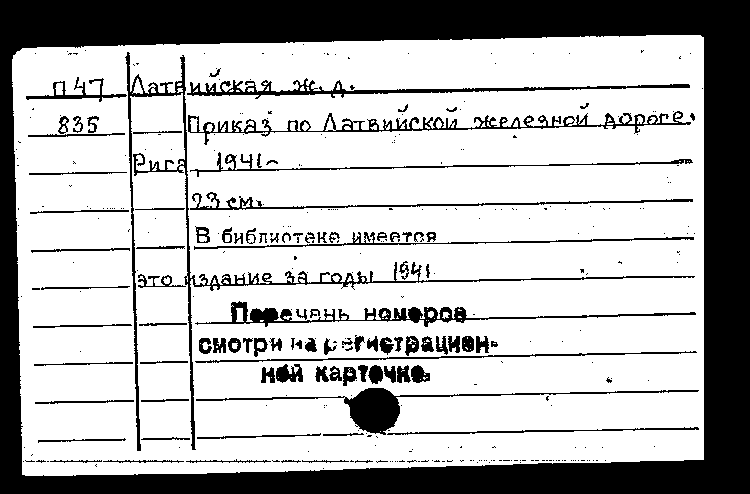 П47 Латвийская ж. д.
835 Приказ по Латвийской железной дороге.
Рига, 1941-
23 см.
В библиотеке имеется
это издание за годы 1941
Перечень номеров
смотри на регистрацион-
ной карточке.